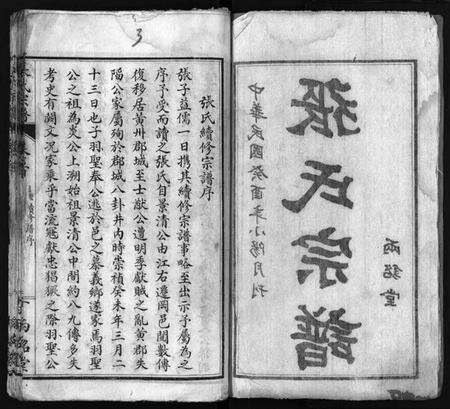 中華民國癸酉年小陽月刊
張氏宗譜
兩銘堂
3
張氏續修宗譜序
張子益儒一日携其續修宗譜事略至出示予屬為之
序予受而讀之張氏自景清公由江右遷岡邑閒數傳
復移居黃州郡城至士猷公遭明季獻賊之亂黃郡失
陷公家屬殉於郡城八卦井內時崇禎癸未年三月二
十三日也子羽聖奉公逃於邑之慕義鄉遂家焉羽聖
公之祖為炎公上溯始祖景清公中閒約八九傳多失
考史有闕文況家乘乎當流寇獻忠猖獗之際羽聖公
兩銘堂